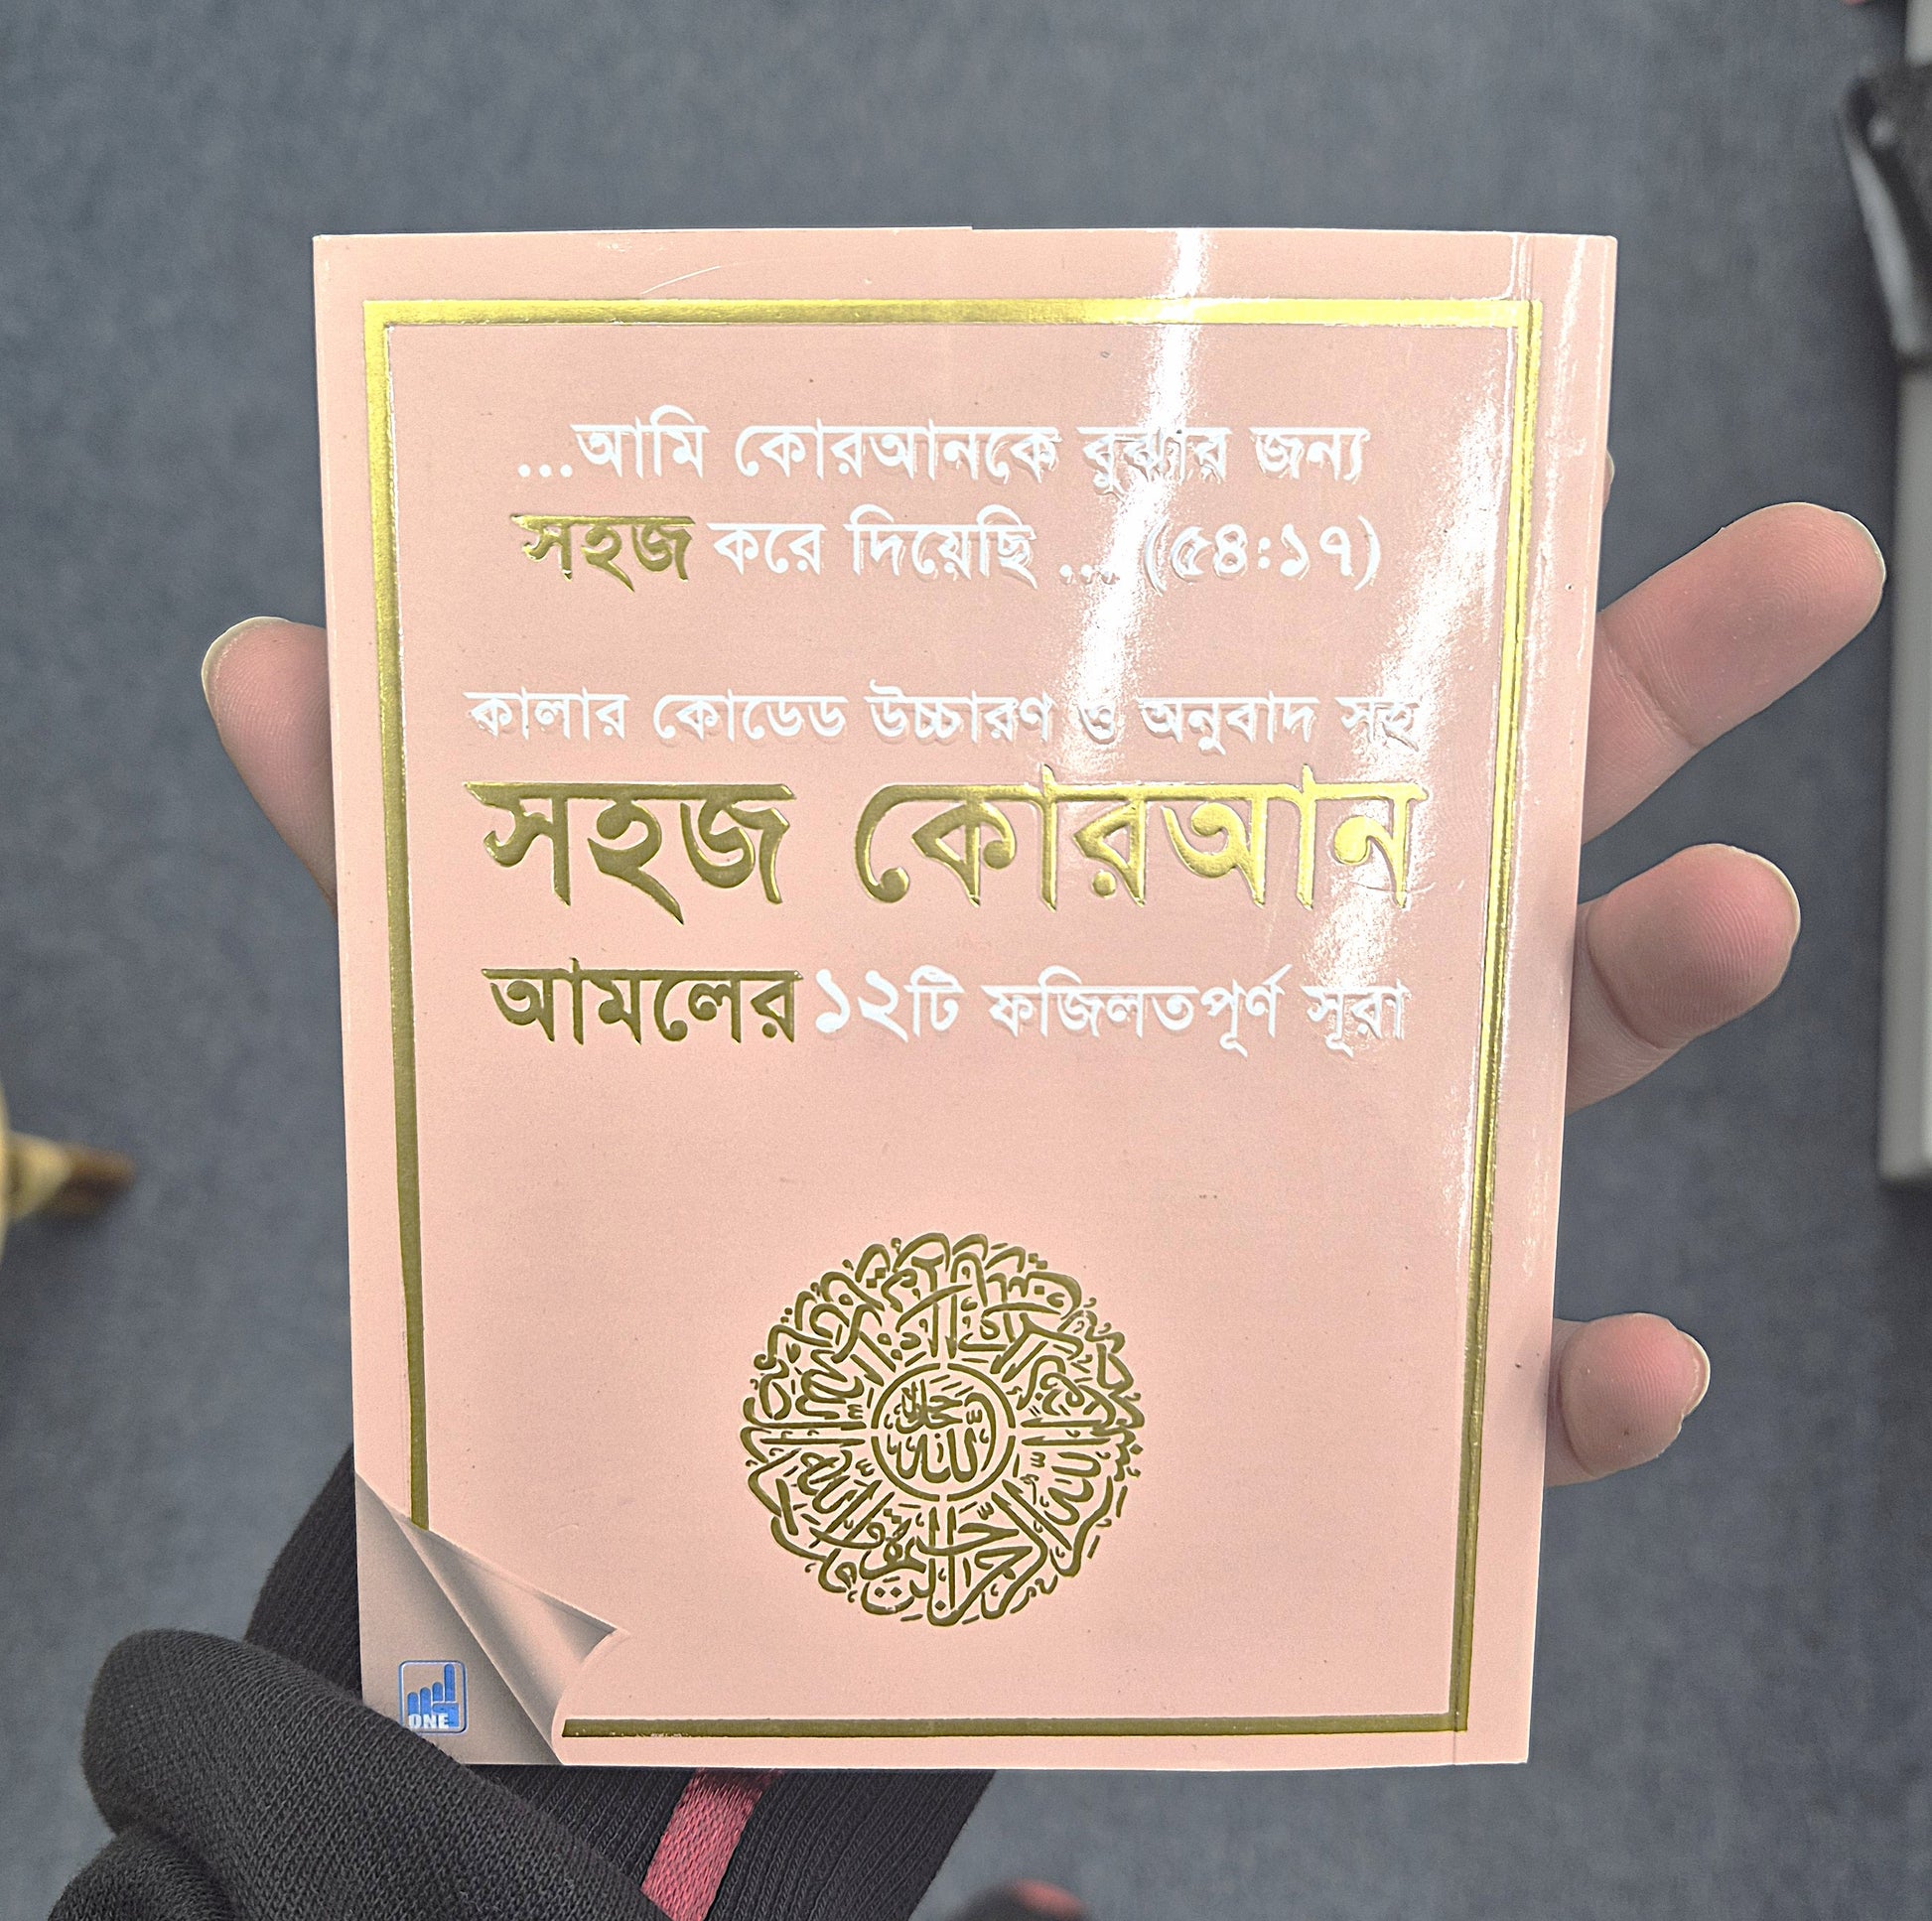 ...আমি কোরআনকে বুঝার জন্য
সহজ করে দিয়েছি ... (৫৪:১৭)
কালার কোডেড উচ্চারণ ও অনুবাদ সহ
সহজ কোরআন
আমলের ১২টি ফজিলতপূর্ণ সূরা
ONE